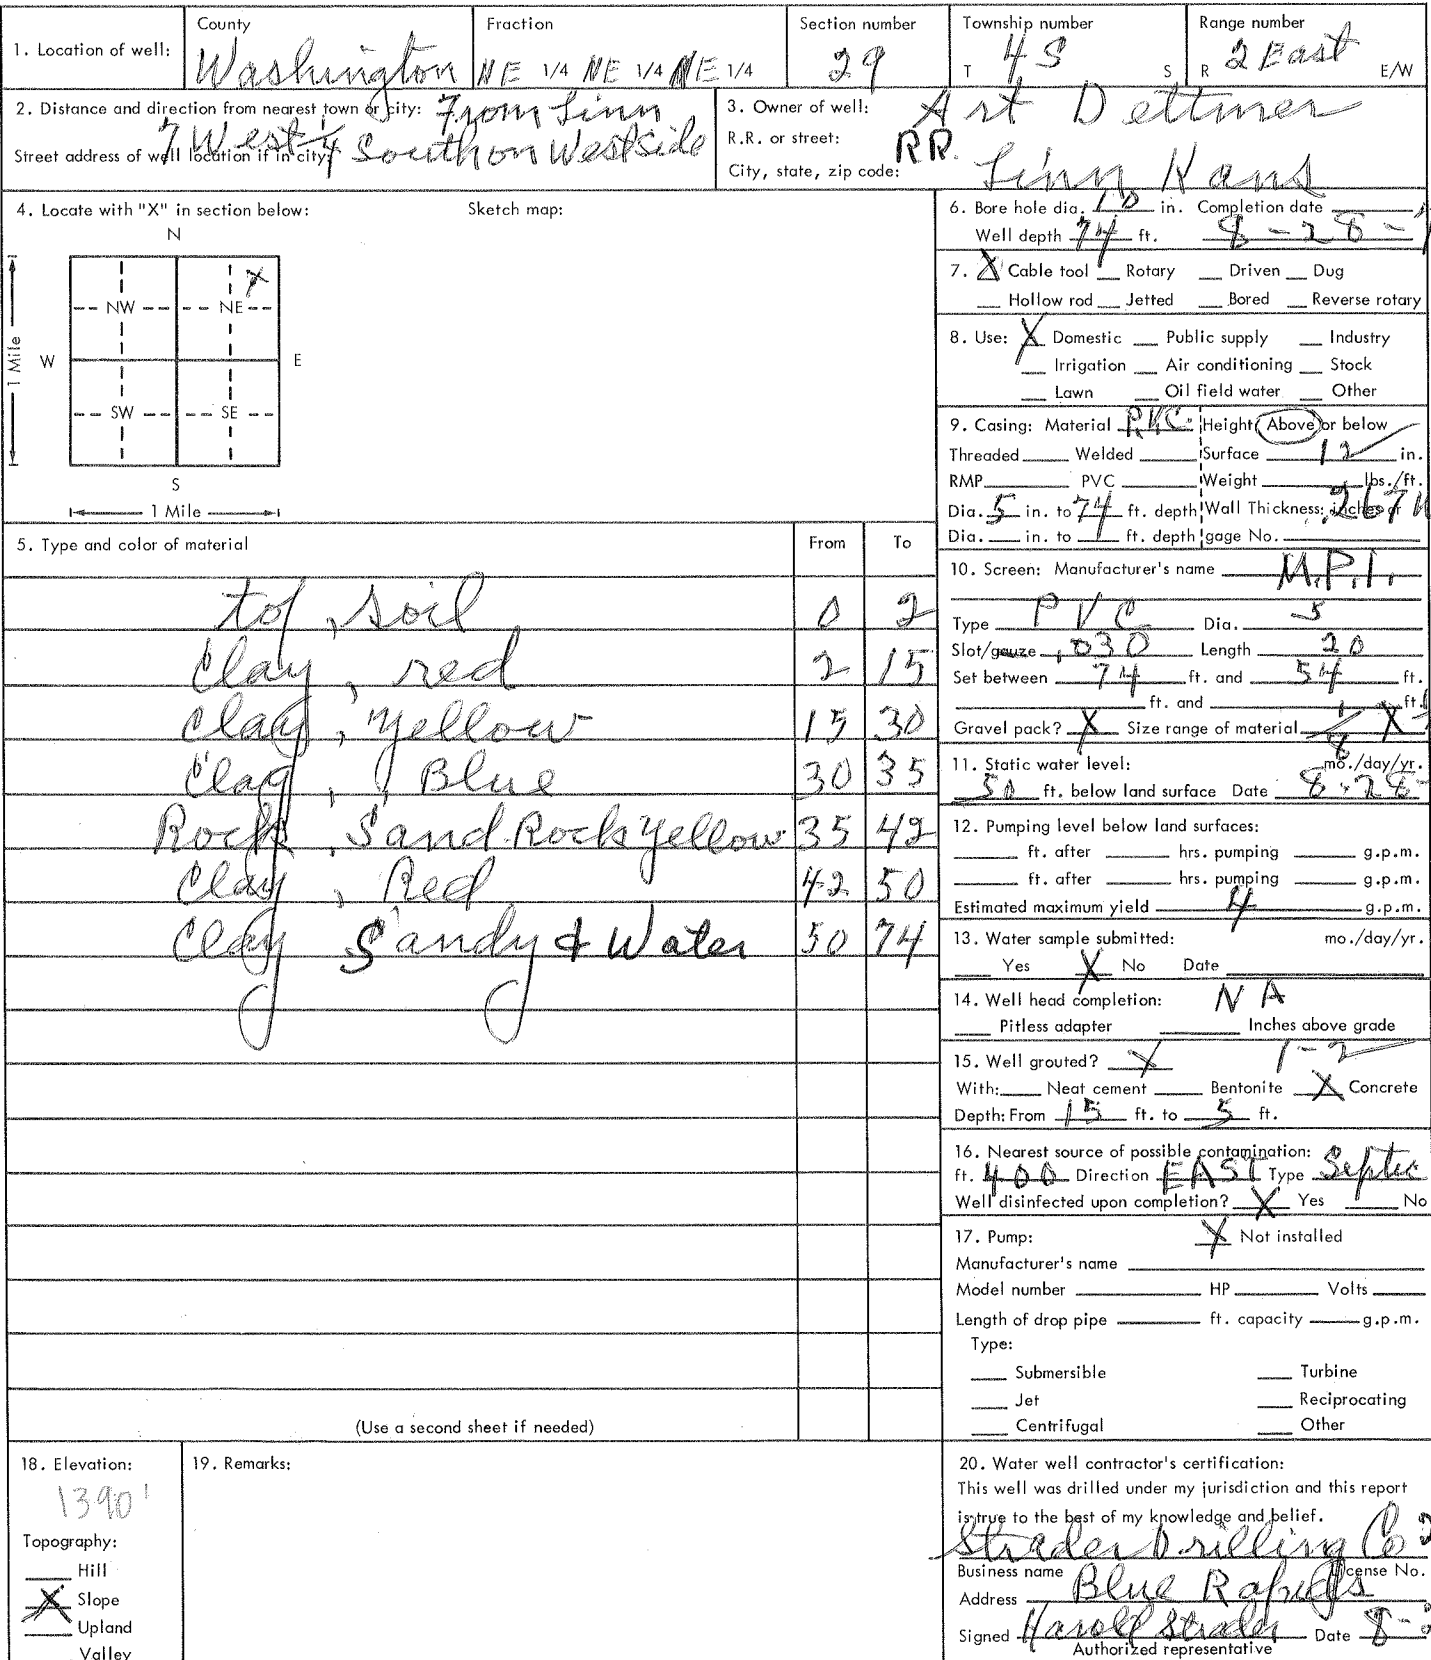 1. Location of well: County Washington Fraction NE 1/4 NE 1/4 NE 1/4 Section number 29 Township number T 4S S Range number R 2 East E/W
2. Distance and direction from nearest town or city: From Linn
7 West 1/4 South on Westside
Street address of well location if in city:
3. Owner of well: Art Dettmer
R.R. or street: RR.
City, state, zip code: Linn Kans
4. Locate with "X" in section below: Sketch map:
N
X
NW NE
1 Mile W E
SW SE
S
1 Mile
5. Type and color of material From To
top, soil 0 2
Clay, red 2 15
Clay, Yellow 15 30
Clay, Blue 30 35
Rock, Sand Rock Yellow 35 42
Clay, Red 42 50
Clay Sandy & Water 50 74
(Use a second sheet if needed)
6. Bore hole dia. 10 in. Completion date
Well depth 74 ft. 8-28-
7. X Cable tool Rotary Driven Dug
Hollow rod Jetted Bored Reverse rotary
8. Use: X Domestic Public supply Industry
Irrigation Air conditioning Stock
Lawn Oil field water Other
9. Casing: Material PVC Height: Above or below
Threaded Welded Surface 12 in.
RMP PVC Weight lbs./ft.
Dia. 5 in. to 74 ft. depth Wall Thickness: inches or .267
Dia. in. to ft. depth gage No.
10. Screen: Manufacturer's name M.P.I.
Type PVC Dia. 5
Slot/gauze .030 Length 20
Set between 74 ft. and 54 ft.
ft. and ft.
Gravel pack? X Size range of material 1/8 X
11. Static water level: mo./day/yr.
50 ft. below land surface Date 8-28-
12. Pumping level below land surfaces:
ft. after hrs. pumping g.p.m.
ft. after hrs. pumping g.p.m.
Estimated maximum yield 4 g.p.m.
13. Water sample submitted: mo./day/yr.
Yes X No Date
14. Well head completion: NA
Pitless adapter Inches above grade
15. Well grouted? X 1-2
With: Neat cement Bentonite X Concrete
Depth: From 15 ft. to 5 ft.
16. Nearest source of possible contamination:
ft. 400 Direction EAST Type Septic
Well disinfected upon completion? X Yes No
17. Pump: X Not installed
Manufacturer's name
Model number HP Volts
Length of drop pipe ft. capacity g.p.m.
Type:
Submersible Turbine
Jet Reciprocating
Centrifugal Other
18. Elevation:
1390'
Topography:
Hill
X Slope
Upland
Valley
19. Remarks:
20. Water well contractor's certification:
This well was drilled under my jurisdiction and this report
is true to the best of my knowledge and belief.
Strader Drilling Co
Business name License No.
Address Blue Rapids
Signed Harold Strader Date 8-
Authorized representative